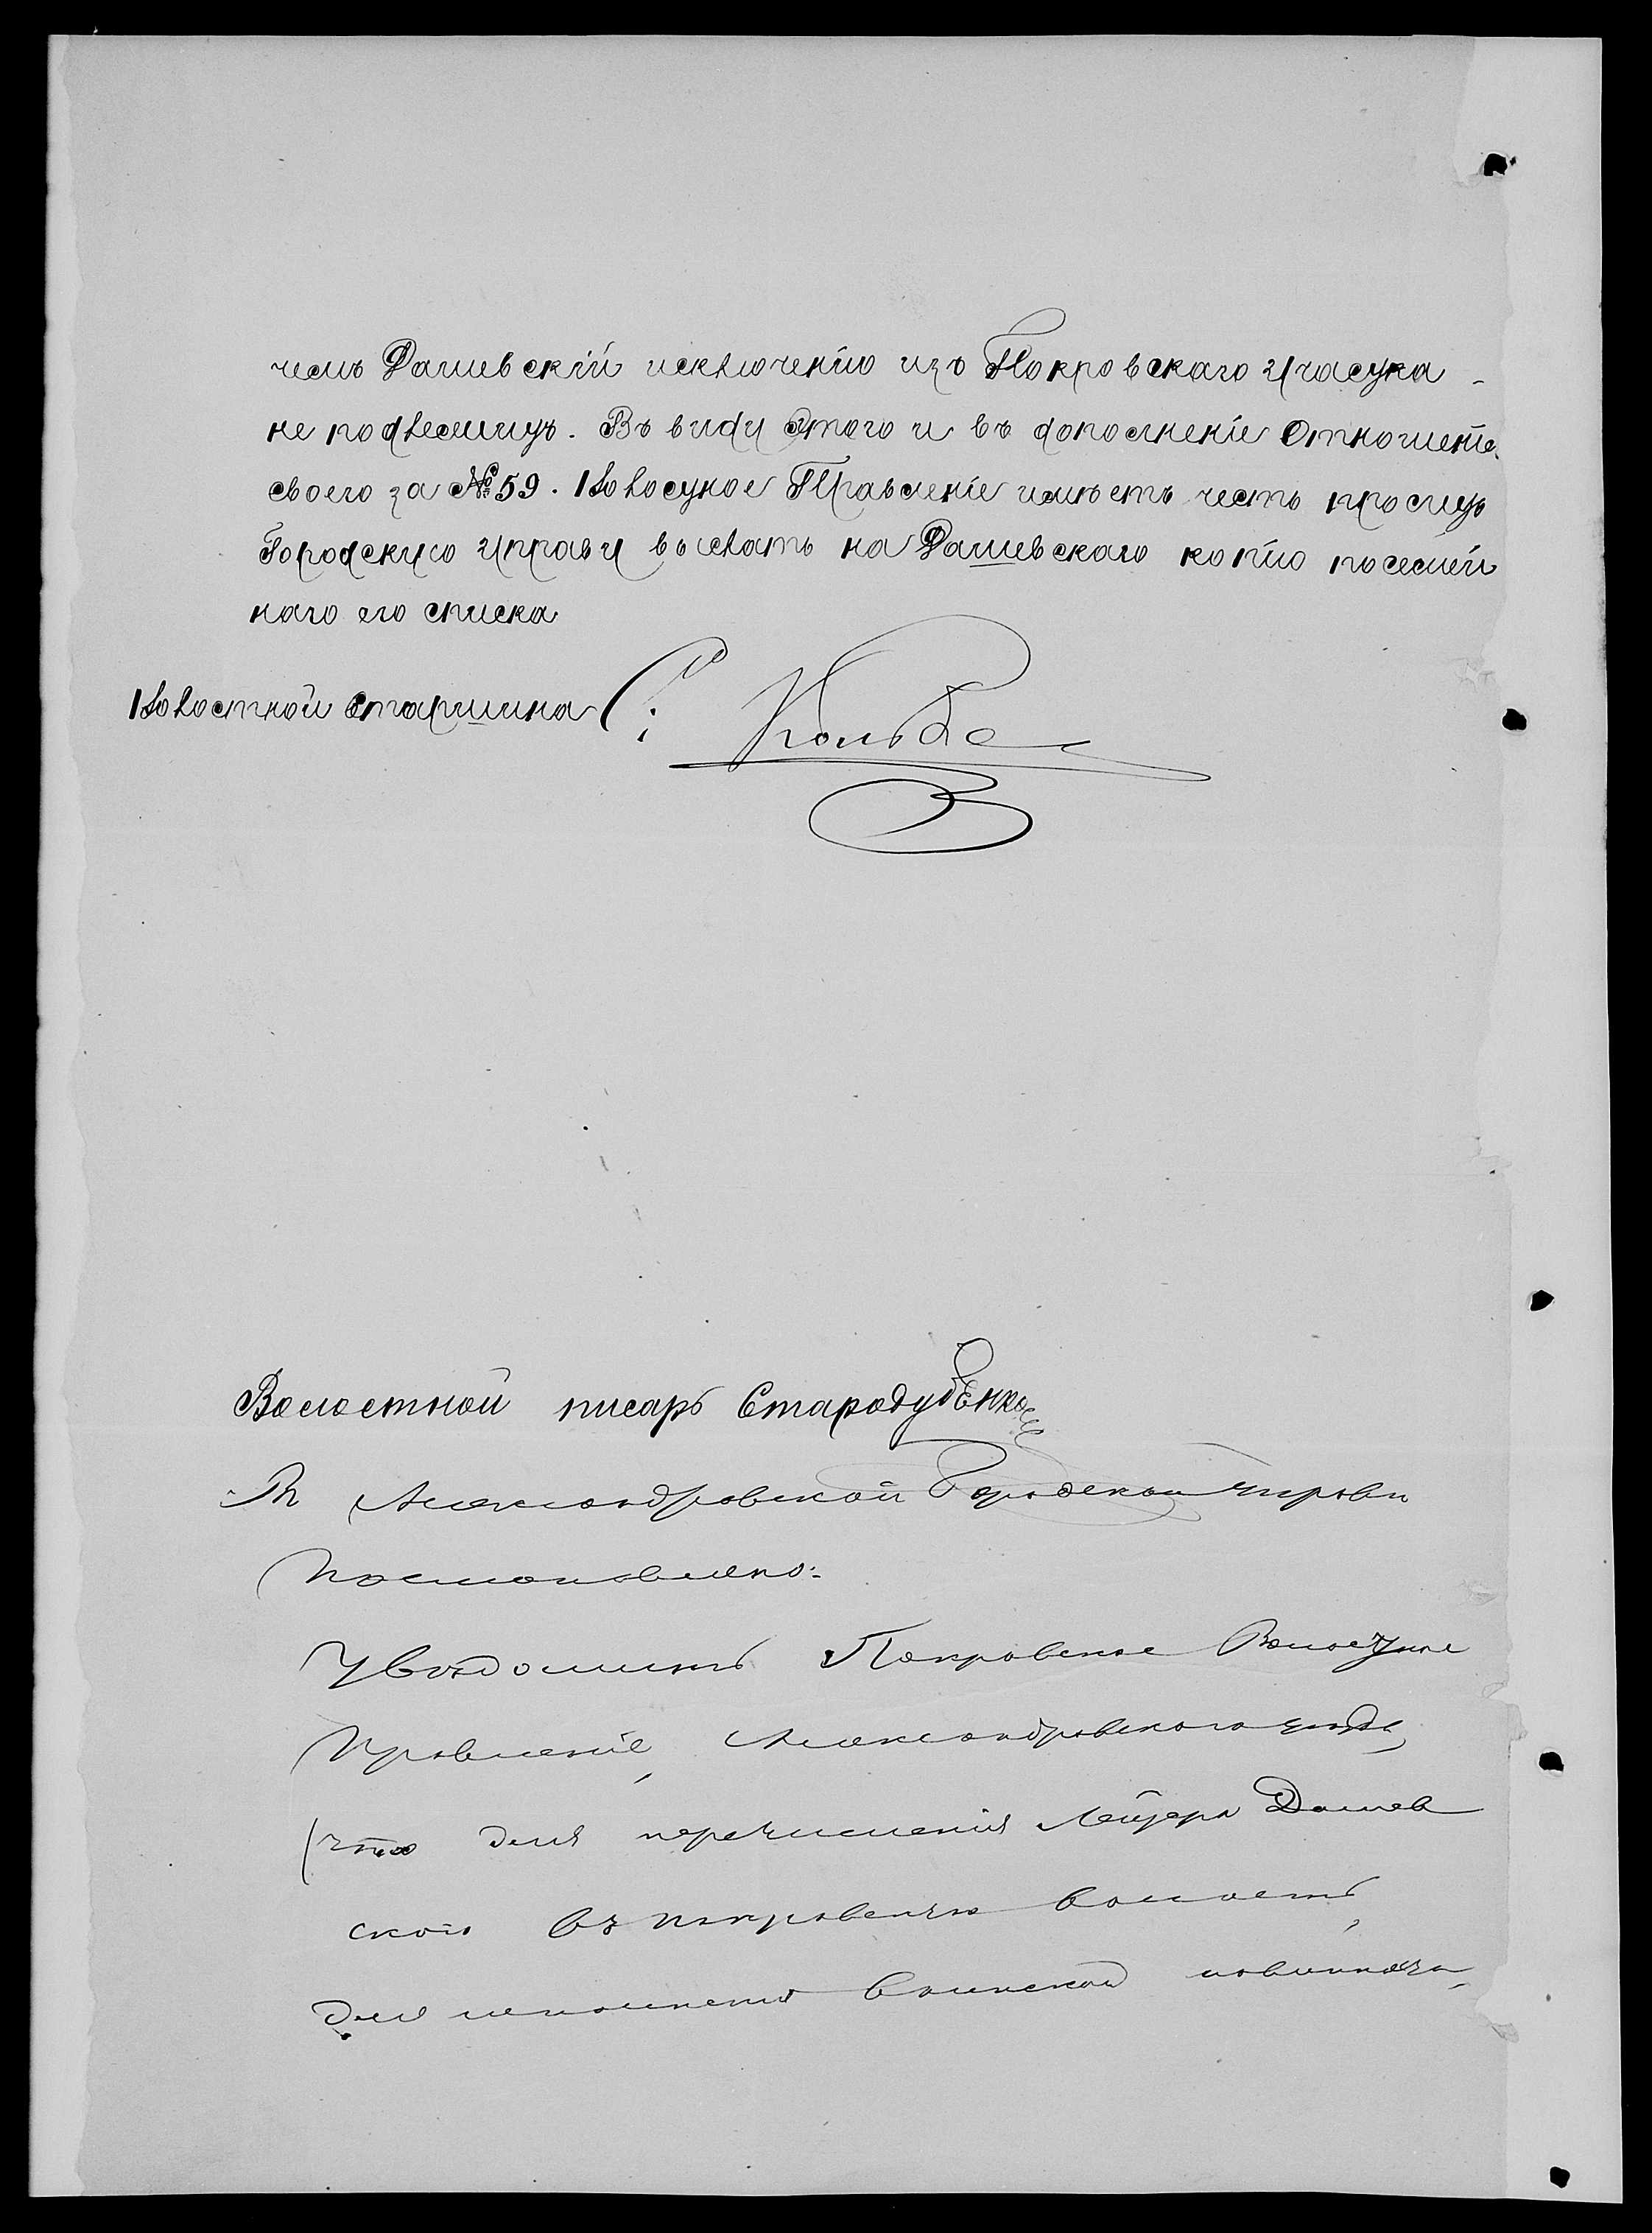 чемъ Дашевскій исключенію изъ Покровскаго участка
не подлежитъ. Въ виду этого и въ дополненіе отношенія
своего за № 59. Волостное Правленіе имѣетъ честь просить
Городскую Управу выслать на Дашевскаго копію посемей
наго его списка
Волостной Старшина
Волостной писарь Стародубенко
В Александровской Городской Управѣ
Постановлено:
Увѣдомить Покровское Волостное
Правленіе, Александровскаго уѣзда,
что для перечисленія Лейзера Дашев
скаго въ Покровскую волость,
для исполненія воинской повинности,